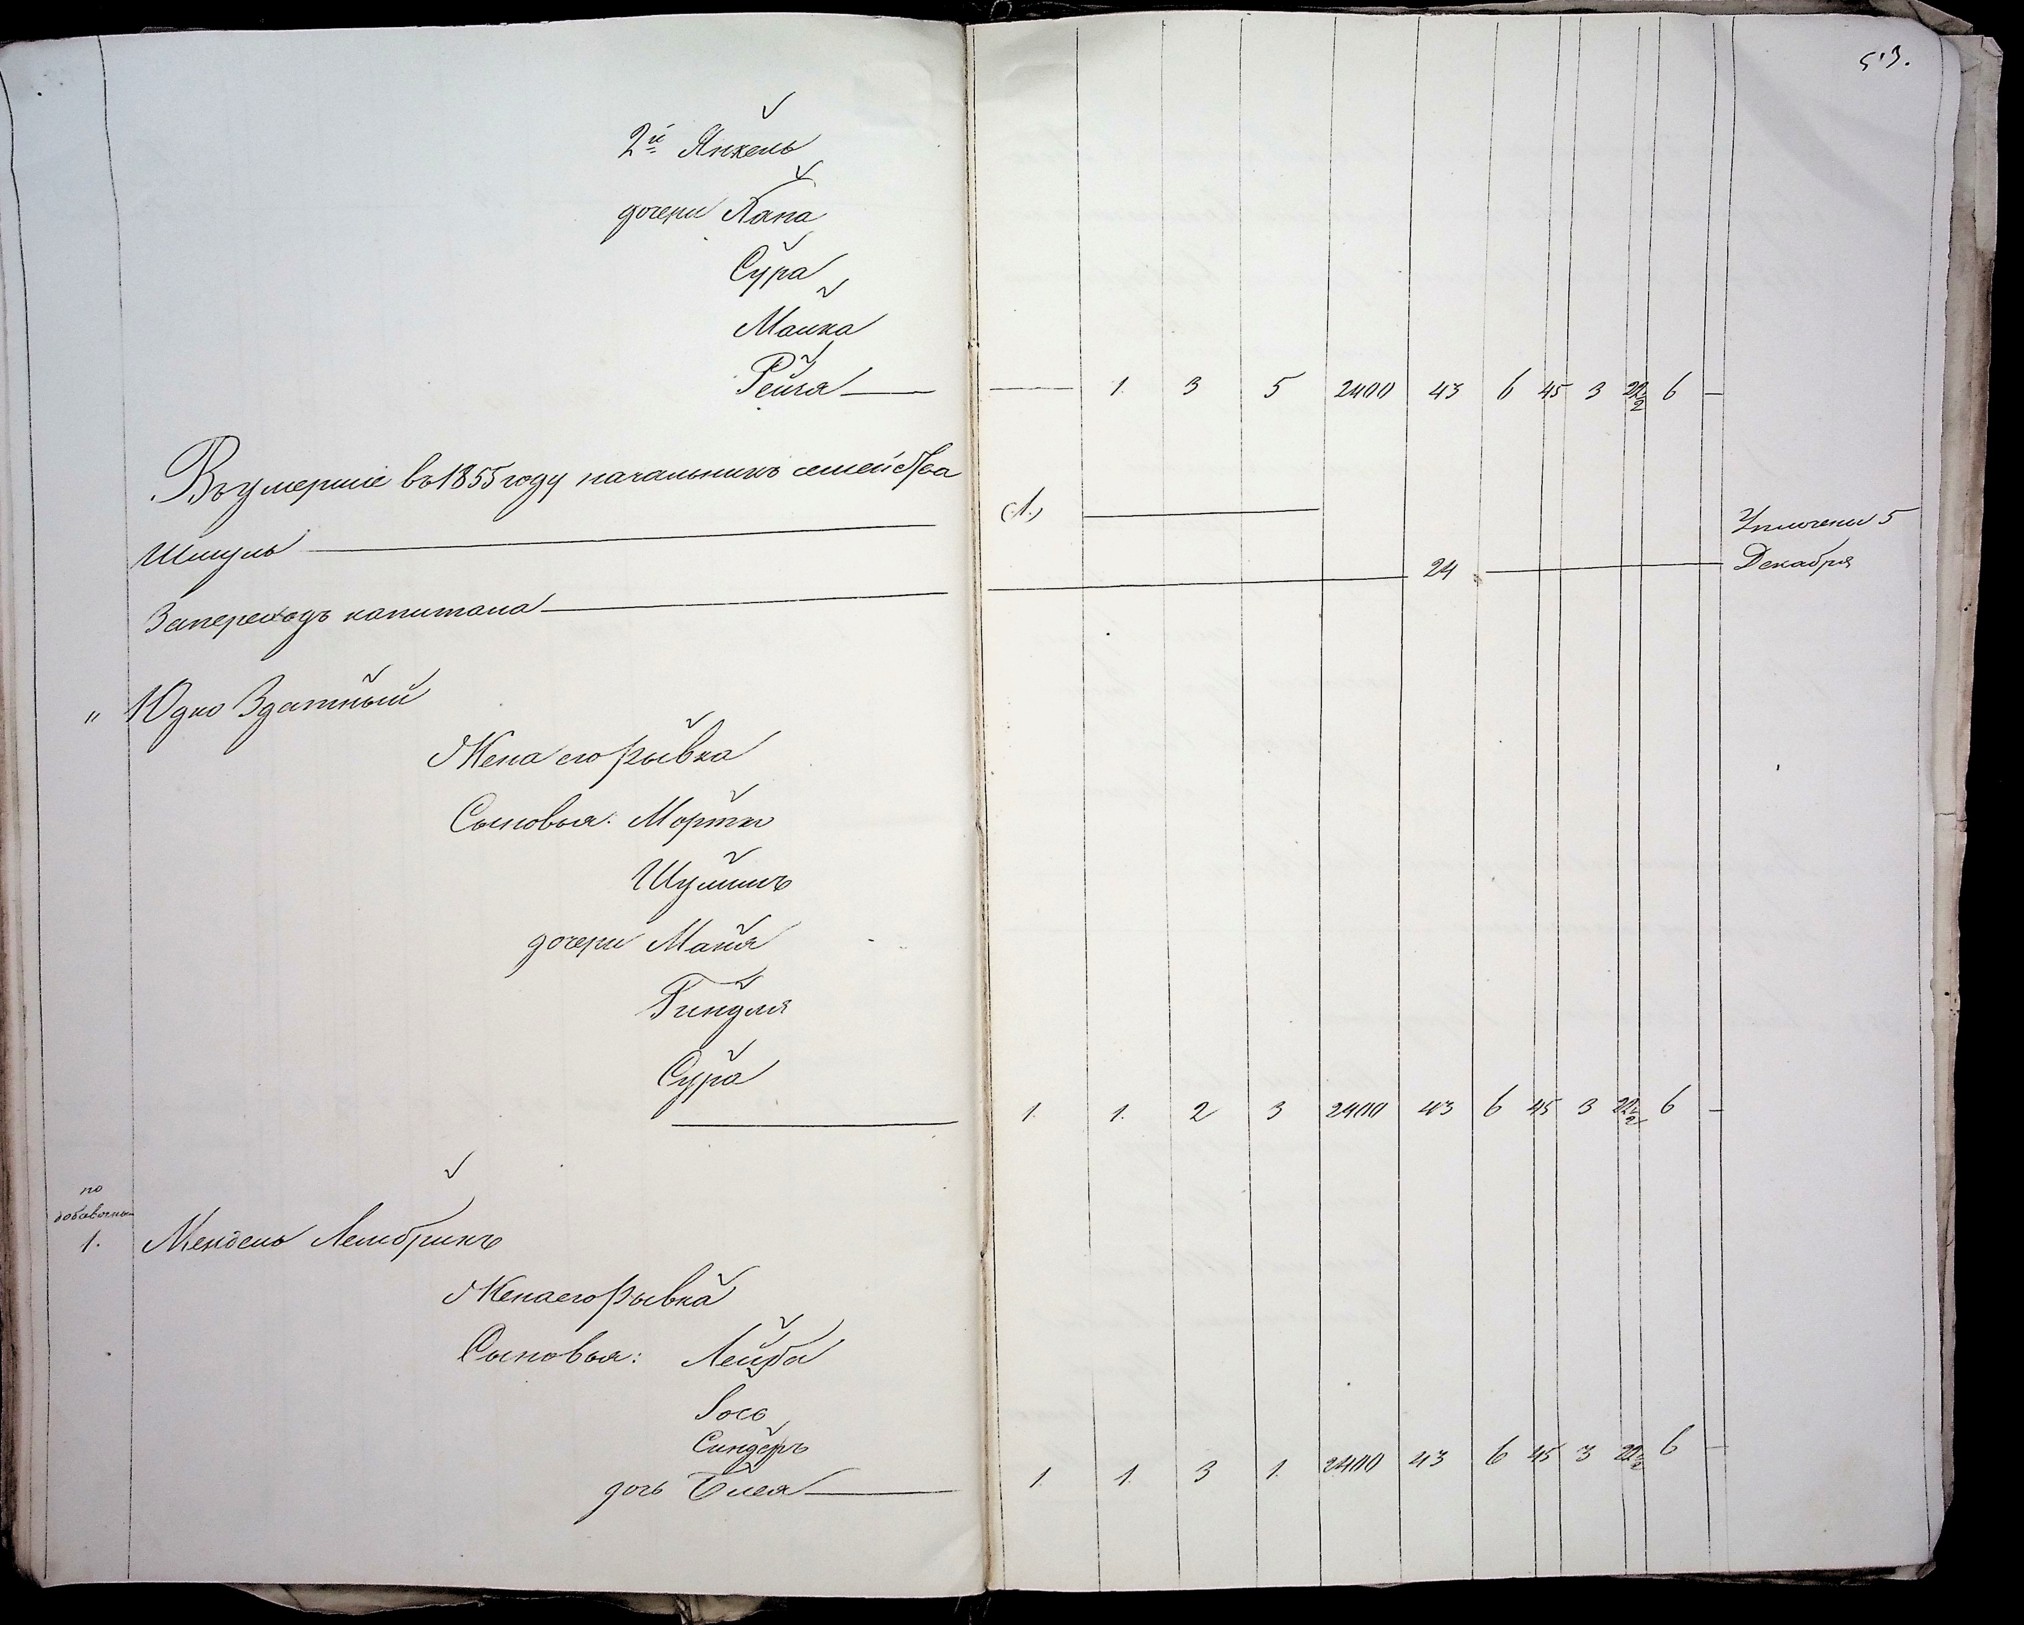 53.
2й Янкель
дочери Хана
Сура
Малка
Рейзя — — 1. 3 5 2400 43 6 45 3 22½ 6 —
Въ умершіе въ 1855 году начальникъ семейства
Шмуль — (1.) —
За переходъ капитала — 24 —
Уплочени 5
Декабря
" Юдко Здатный
Жена его Рывка
Сыновья: Мортко
Шулимъ
дочери Маня
Гиндля
Сура
1. 1. 2 3 2400 43 6 45 3 22½ 6 —
по
добавочн
1. Мендель Лембрикъ
Жена его Рывка
Сыновья: Лейба
Іось
Сендеръ
дочь Бася — 1. 1. 3 1. 2400 43 6 45 3 22½ 6 —